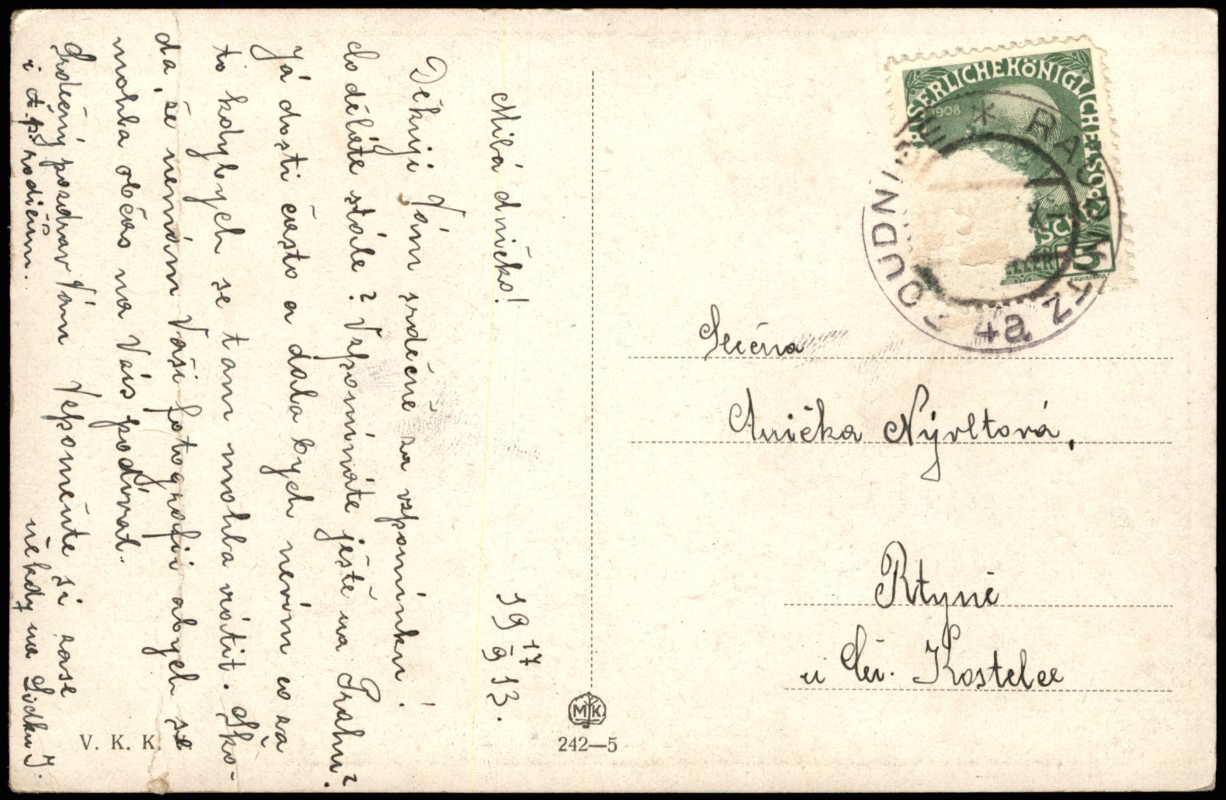 Milá Aničko!
19 17/9 13.
Děkuji Vám srdečně za vzpomínku.
Co děláte stále? Vzpomínáte ještě na Prahu?
Já dosti často a dala bych nevím co za
to kdybych se tam mohla vrátit. Ško-
da, že nemám Vaši fotografii abych se
mohla občas na Vás podívat.
Srdečný pozdrav Vám Vzpomeňte si zase
i ct. p. rodičům. někdy na Lidku J.
V. K. K.
MK
242—5
KAISERLICHE KÖNIGLICHE
1908
5
4a
Slečna
Anička Nývltová,
Rtyně
u Čer. Kostelce